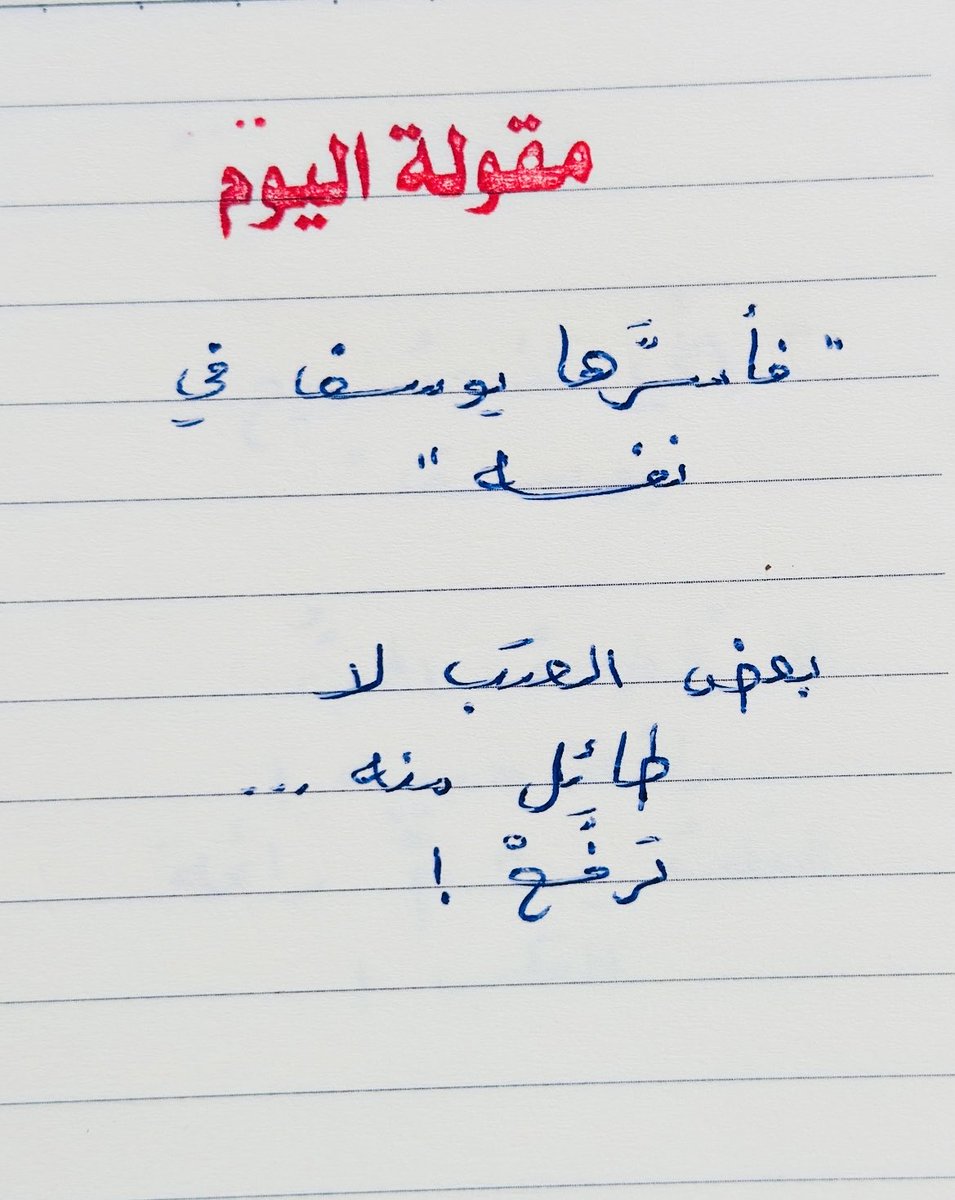 مقولة اليوم
" فأسرَّها يوسف في
نفسه "
بعض العتَب لا
طائِل منه ...
تَرفَّعْ !